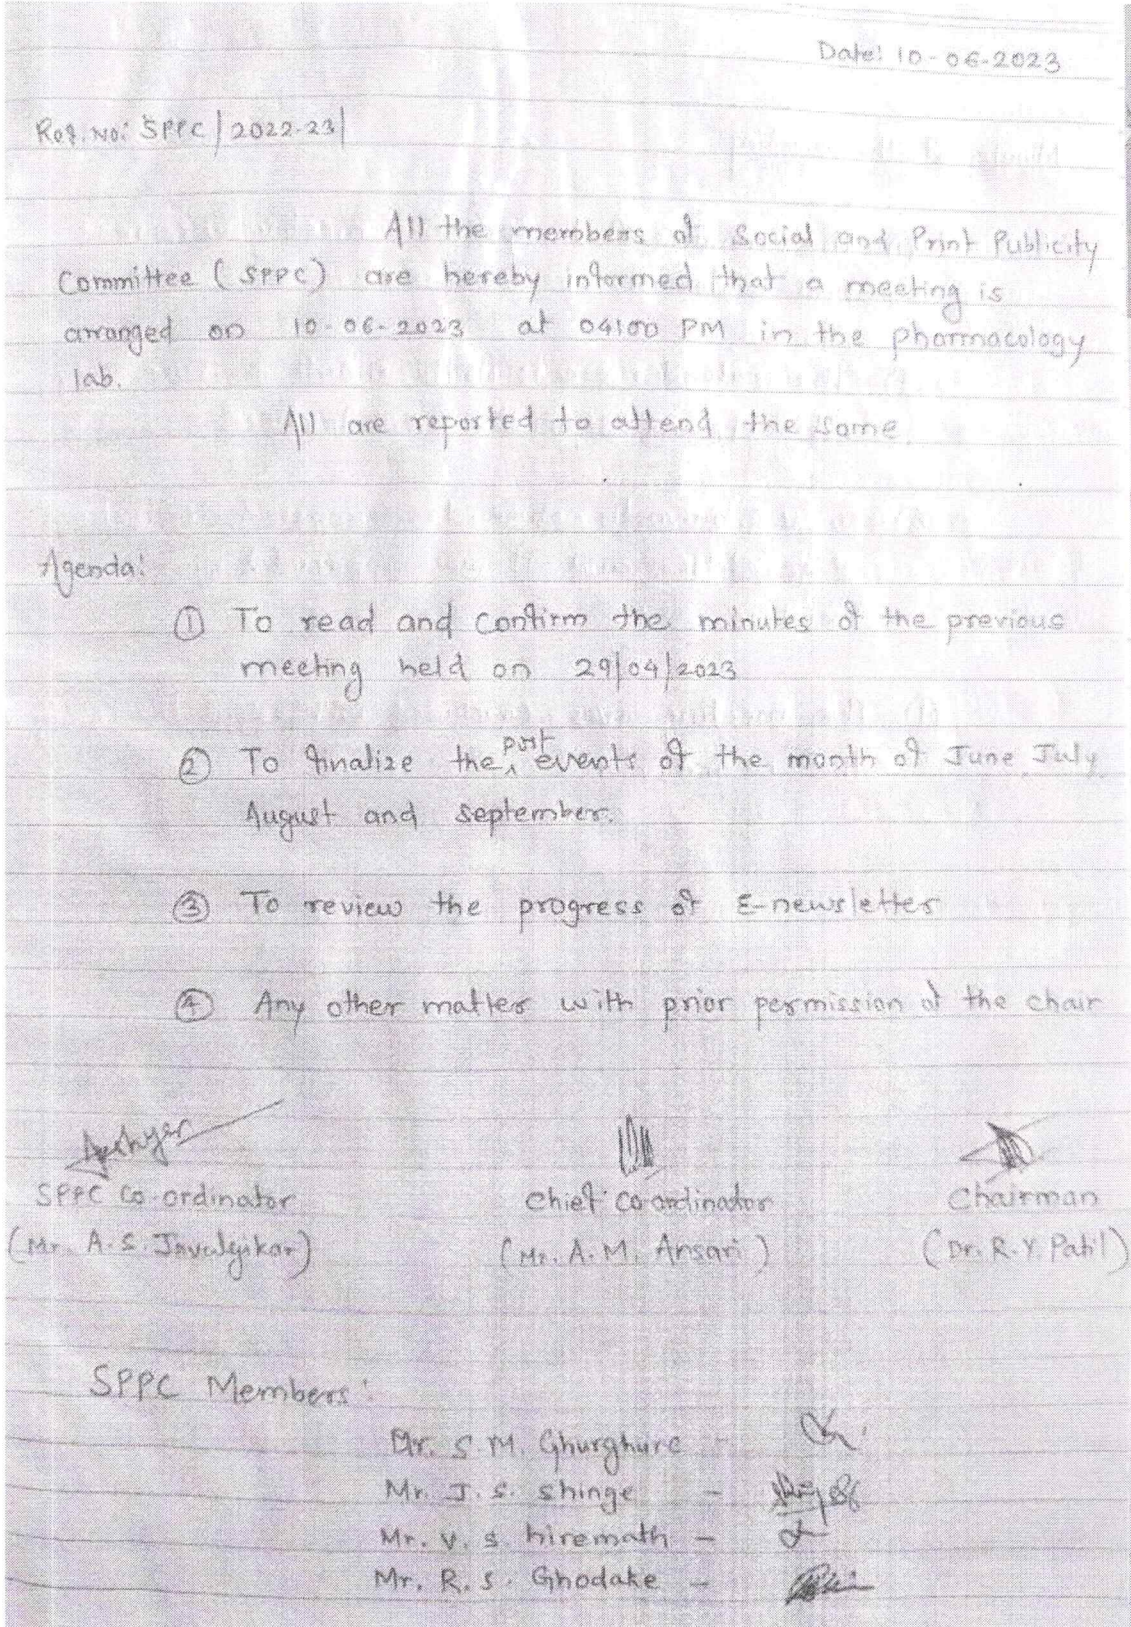 Date: 10-06-2023
Ref. No: SPPC/2022-23/
All the members of Social and Print Publicity
Committee (SPPC) are hereby informed that a meeting is
arranged on 10-06-2023 at 04:00 PM in the pharmacology
lab.
All are reported to attend the same
Agenda:
① To read and confirm the minutes of the previous
meeting held on 29/04/2023
② To finalize the post events of the month of June, July,
August and September.
③ To review the progress of E-newsletter
④ Any other matter with prior permission of the chair
SPPC Co-ordinator Chief Co-ordinator Chairman
(Mr. A.S. Jevalgikar) (Mr. A.M. Ansari) (Dr. R.Y. Patil)
SPPC Members:
S.M. Ghurghure -
Mr. J.S. Shinge -
Mr. V.S. hiremath -
Mr. R.S. Ghodake -